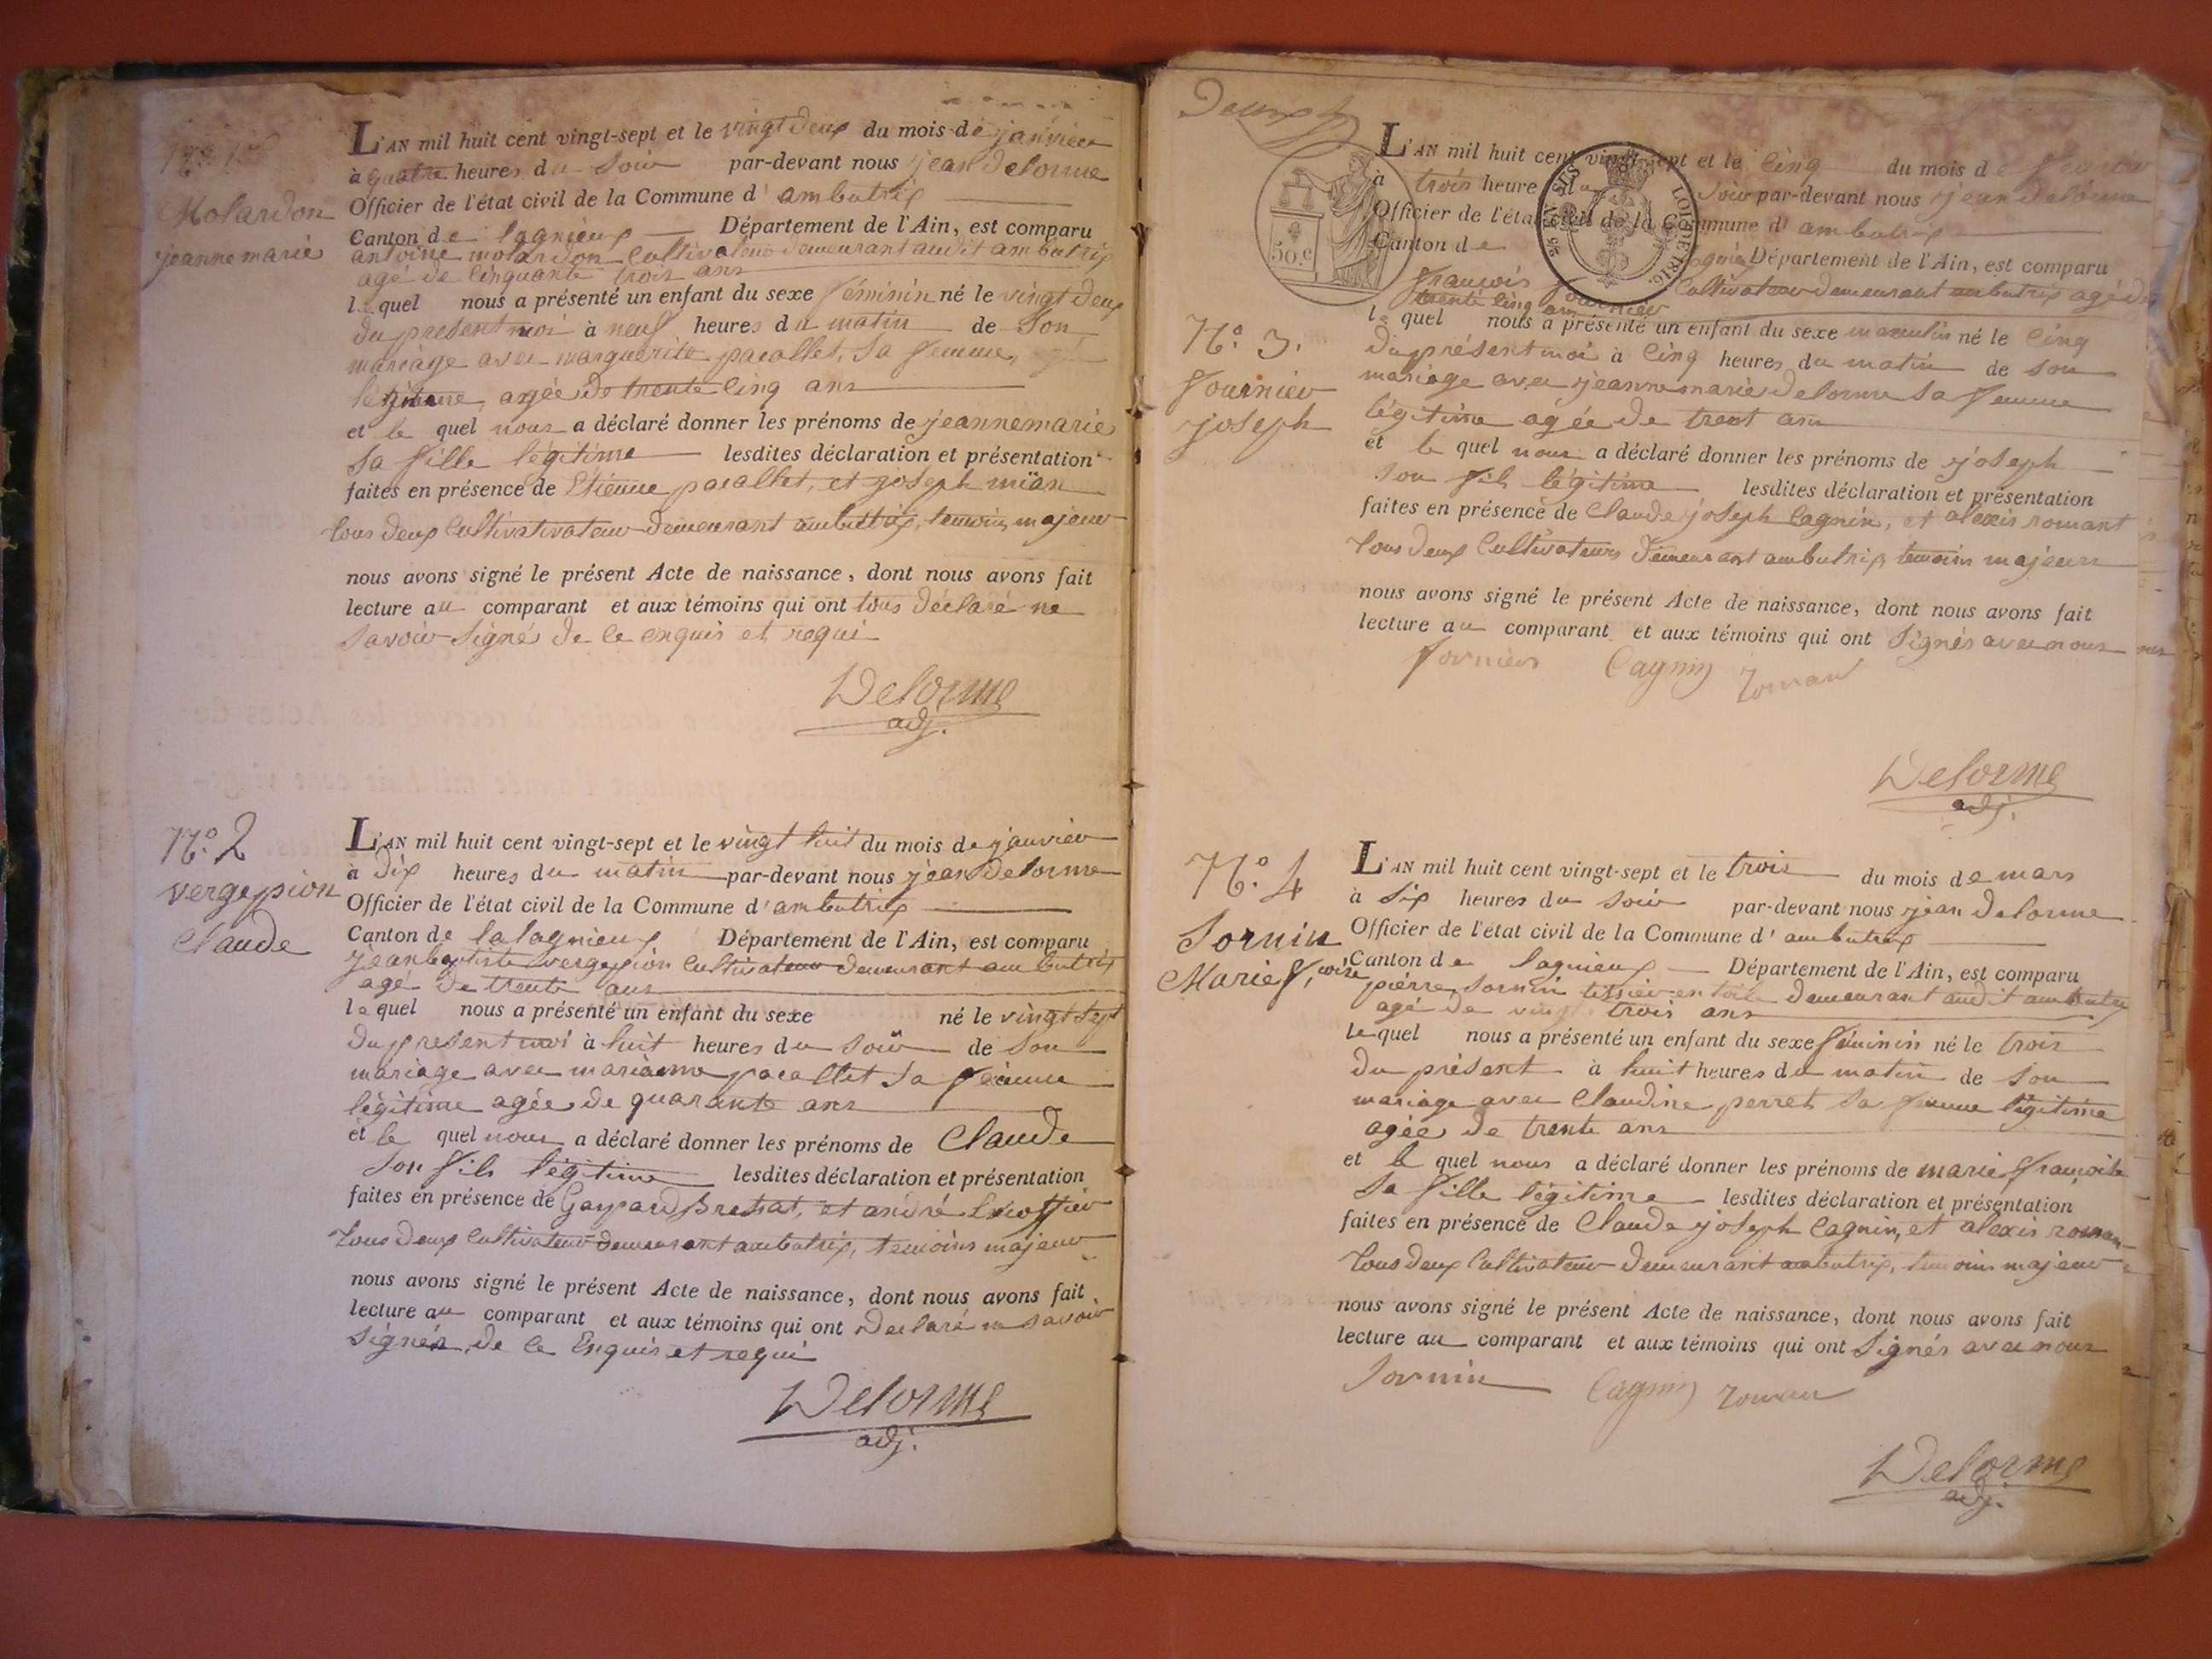 N.º 1er
Molardon
jeanne marie
L'AN mil huit cent vingt-sept et le vingt deux du mois de janvier
à quatre heures du soir par-devant nous jean Delorme
Officier de l'état civil de la Commune d'ambutrix
Canton de lagnieux Département de l'Ain, est comparu
antoine molardon Cultivateur demeurant audit ambutrix
agé de Cinquante trois ans
lequel nous a présenté un enfant du sexe féminin né le vingt deux
du present moi à neuf heures du matin de son
mariage avec marguerite pacallet, sa femme,
légitime, agée de trente Cinq ans
et le quel nous a déclaré donner les prénoms de jeanne marie
sa fille légitime lesdites déclaration et présentation
faites en présence de Etienne pacallet, et joseph mian
tous deux Cultivativateur demeurant ambutrix, temoins majeur
nous avons signé le présent Acte de naissance, dont nous avons fait
lecture au comparant et aux témoins qui ont tous déclaré ne
savoir signés de ce enquis et requi
Delorme
adj.
N.º 2
vergepion
Claude
L'AN mil huit cent vingt-sept et le vingt huit du mois de janvier
à Dix heures du matin par-devant nous jean Delorme
Officier de l'état civil de la Commune d'ambutrix
Canton de lalagnieux Département de l'Ain, est comparu
jean baptiste vergepion Cultivateur demeurant ambutrix
agé de trente ans
lequel nous a présenté un enfant du sexe né le vingt sept
du present moi à huit heures du soir de son
mariage avec marianne pacallet sa femme
légitime agée de quarante ans
et le quel nous a déclaré donner les prénoms de Claude
son fils légitime lesdites déclaration et présentation
faites en présence de Gaspard Bressat, et andré
tous deux Cultivateur demeurant ambutrix, temoins majeur
nous avons signé le présent Acte de naissance, dont nous avons fait
lecture au comparant et aux témoins qui ont Declaré ne savoir
signés, de ce Enquis et requi
Delorme
adj.
Deux
50.c
LOI DE 1816.
N.º 3.
fournier
joseph
L'AN mil huit cent vingt-sept et le Cinq du mois de fevrier
à trois heures du soir par-devant nous jean Delorme
Officier de l'état civil de la Commune d'ambutrix
Canton de Département de l'Ain, est comparu
françois fournier Cultivateur demeurant ambutrix agé de
trente Cinq ans
lequel nous a présenté un enfant du sexe masculin né le Cinq
du présent moi à Cinq heures du matin de son
mariage avec jeanne marie delorme sa femme
légitime agée de trent ans
et le quel nous a déclaré donner les prénoms de joseph
son fils légitime lesdites déclaration et présentation
faites en présence de Claude joseph Cagnin, et alexis romant
tous deux Cultivateurs demeurant ambutrix, temoins majeurs
nous avons signé le présent Acte de naissance, dont nous avons fait
lecture au comparant et aux témoins qui ont signés avec nous
forniers Cagnin roman
Delorme
adj.
N.º 4
Sornin
Marie f.çoise
L'AN mil huit cent vingt-sept et le trois du mois de mars
à Six heures du soir par-devant nous jean Delorme
Officier de l'état civil de la Commune d'ambutrix
Canton de lagnieux Département de l'Ain, est comparu
pierre Sornin tissier en toile demeurant audit ambutrix
agé de vingt trois ans
lequel nous a présenté un enfant du sexe féminin né le trois
du présent à huit heures du matin de son
mariage avec Claudine perret sa femme légitime
agée de trente ans
et le quel nous a déclaré donner les prénoms de marie françoise
sa fille légitime lesdites déclaration et présentation
faites en présence de Claude joseph Cagnin, et alexis roman
tous deux Cultivateur demeurant ambutrix, temoins majeur
nous avons signé le présent Acte de naissance, dont nous avons fait
lecture au comparant et aux témoins qui ont signés avec nous
Sornin Cagnin roman
Delorme
adj.